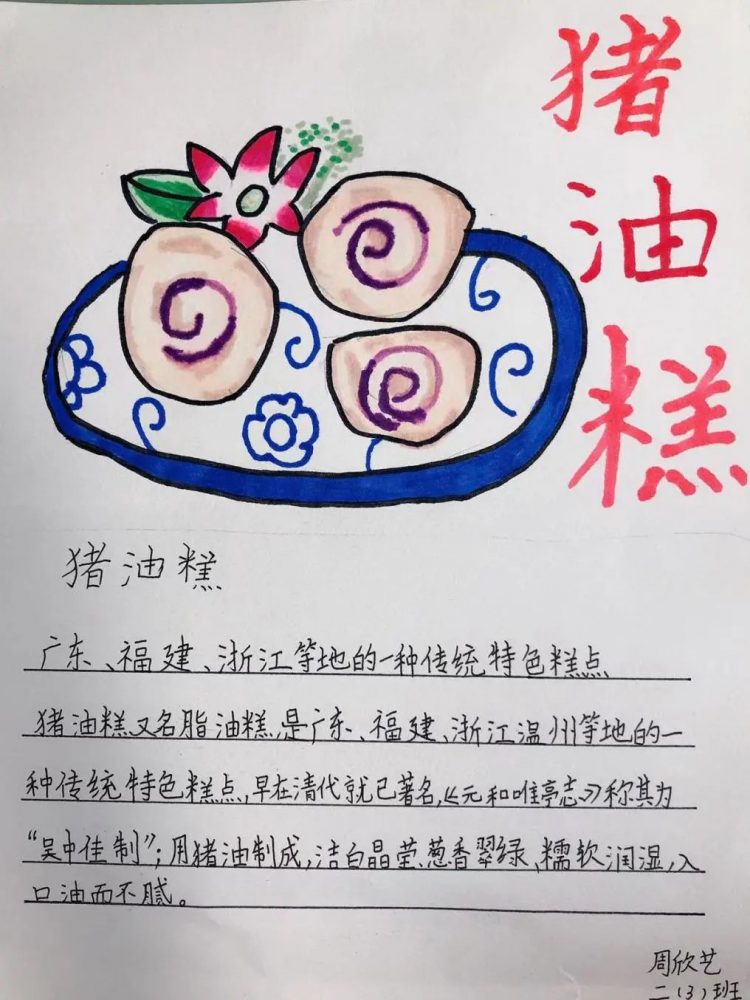 猪油糕
猪油糕
广东、福建、浙江等地的一种传统特色糕点
猪油糕又名脂油糕,是广东、福建、浙江温州等地的一
种传统特色糕点,早在清代就已著名,《元和唯亭志》称其为
“吴中佳制”;用猪油制成,洁白晶莹、葱香翠绿、糯软润湿,入
口油而不腻。
周欣艺
二(3)班